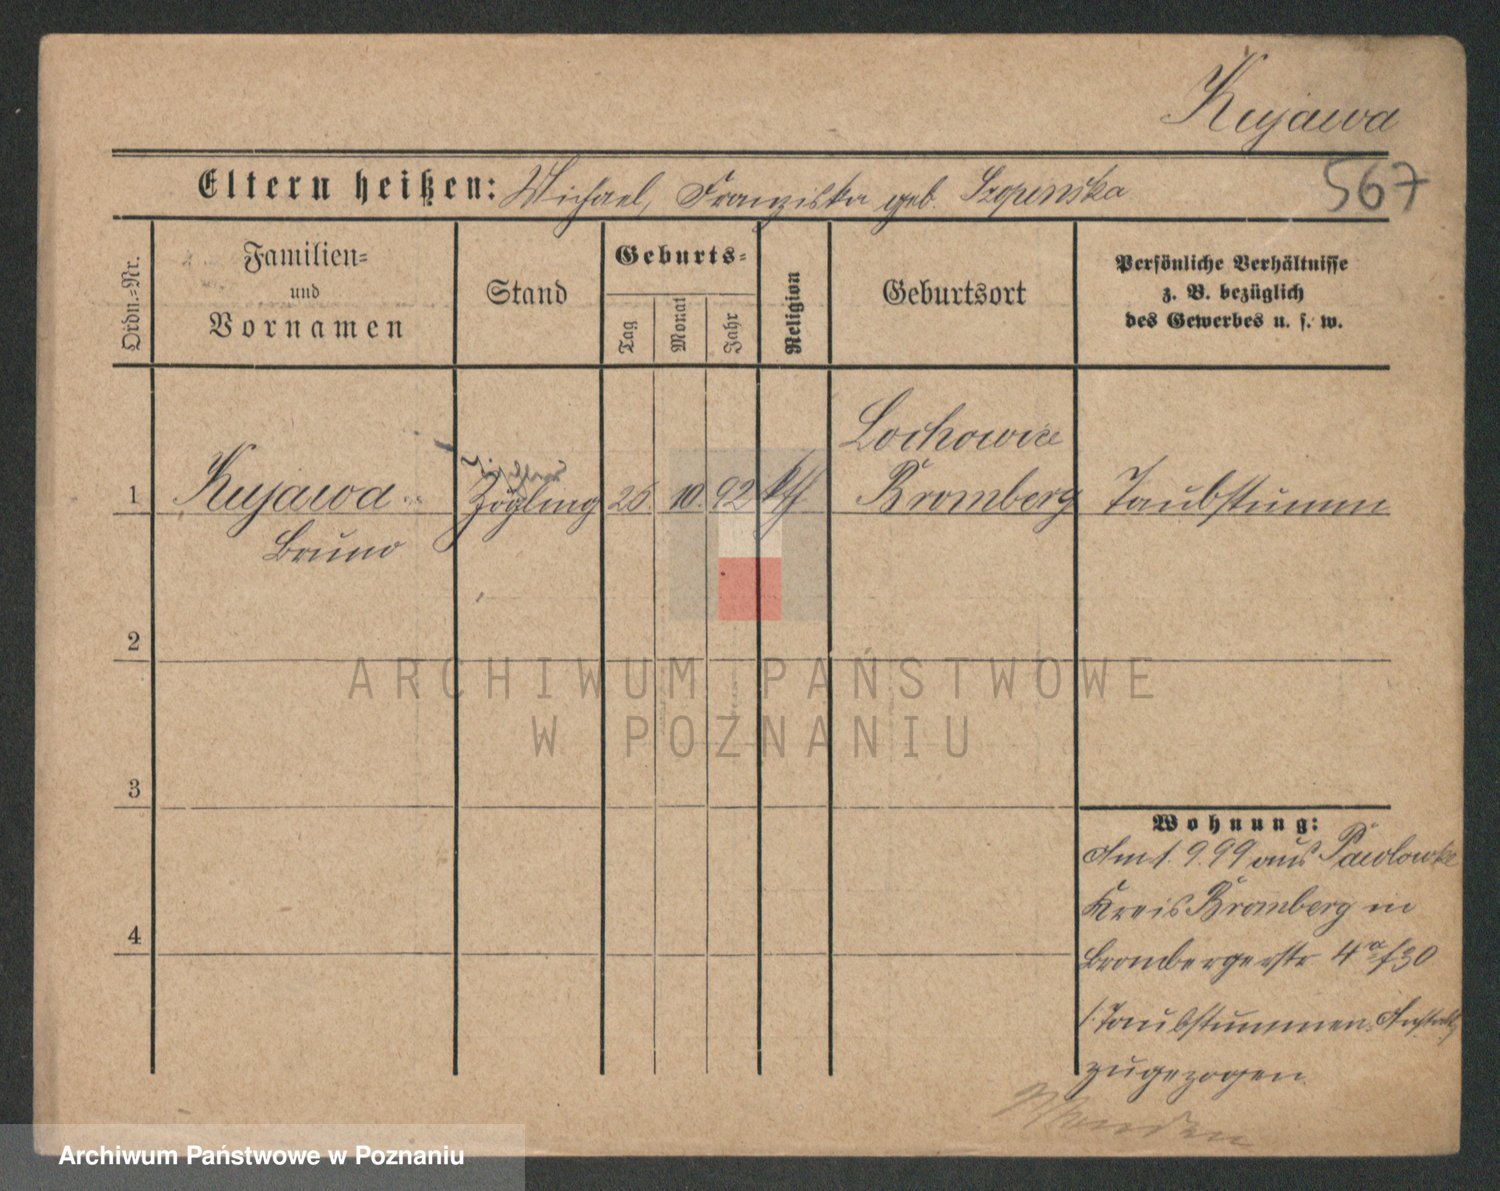 Kujawa
567
Eltern heißen: Michael, Franziska geb. Szopinska
Ordn.-Nr.
Familien-
und
Vornamen
Stand
Geburts-
Tag
Monat
Jahr
Religion
Geburtsort
Persönliche Verhältnisse
z. B. bezüglich
des Gewerbes u. s. w.
Lochowice
1 Kujawa Zögling 25. 10. 92 kth Bromberg Taubstumm
Bruno
2
3
4
Wohnung:
Am 1. 9. 99 aus Pawlowke
Kreis Bromberg in
Brombergerstr. 4a/30
/: Taubstummen-Anstalt
zugezogen
ARCHIWUM PAŃSTWOWE
W POZNANIU
Archiwum Państwowe w Poznaniu